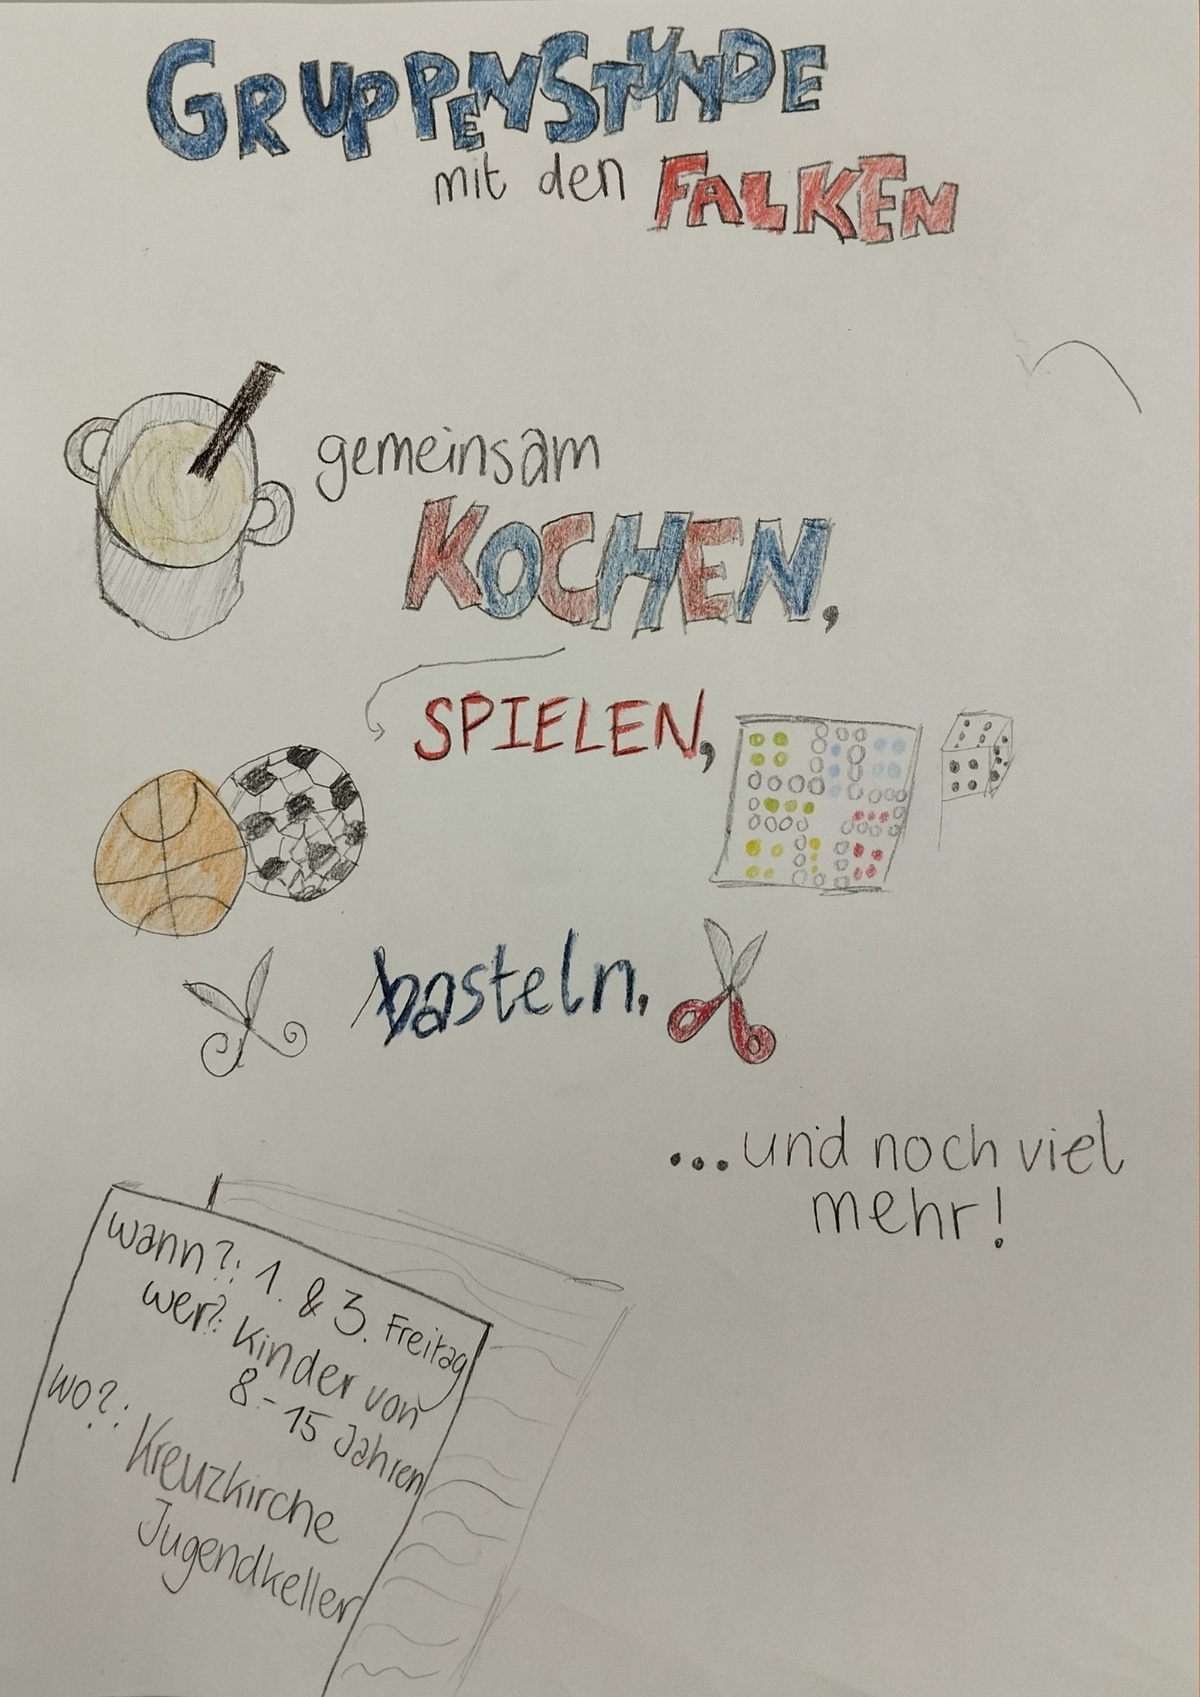 GRUPPENSTUNDE
mit den FALKEN
gemeinsam
KOCHEN,
SPIELEN,
basteln,
...und noch viel
mehr!
wann?: 1. & 3. Freitag
wer?: Kinder von
8-15 Jahren
wo?: Kreuzkirche
Jugendkeller